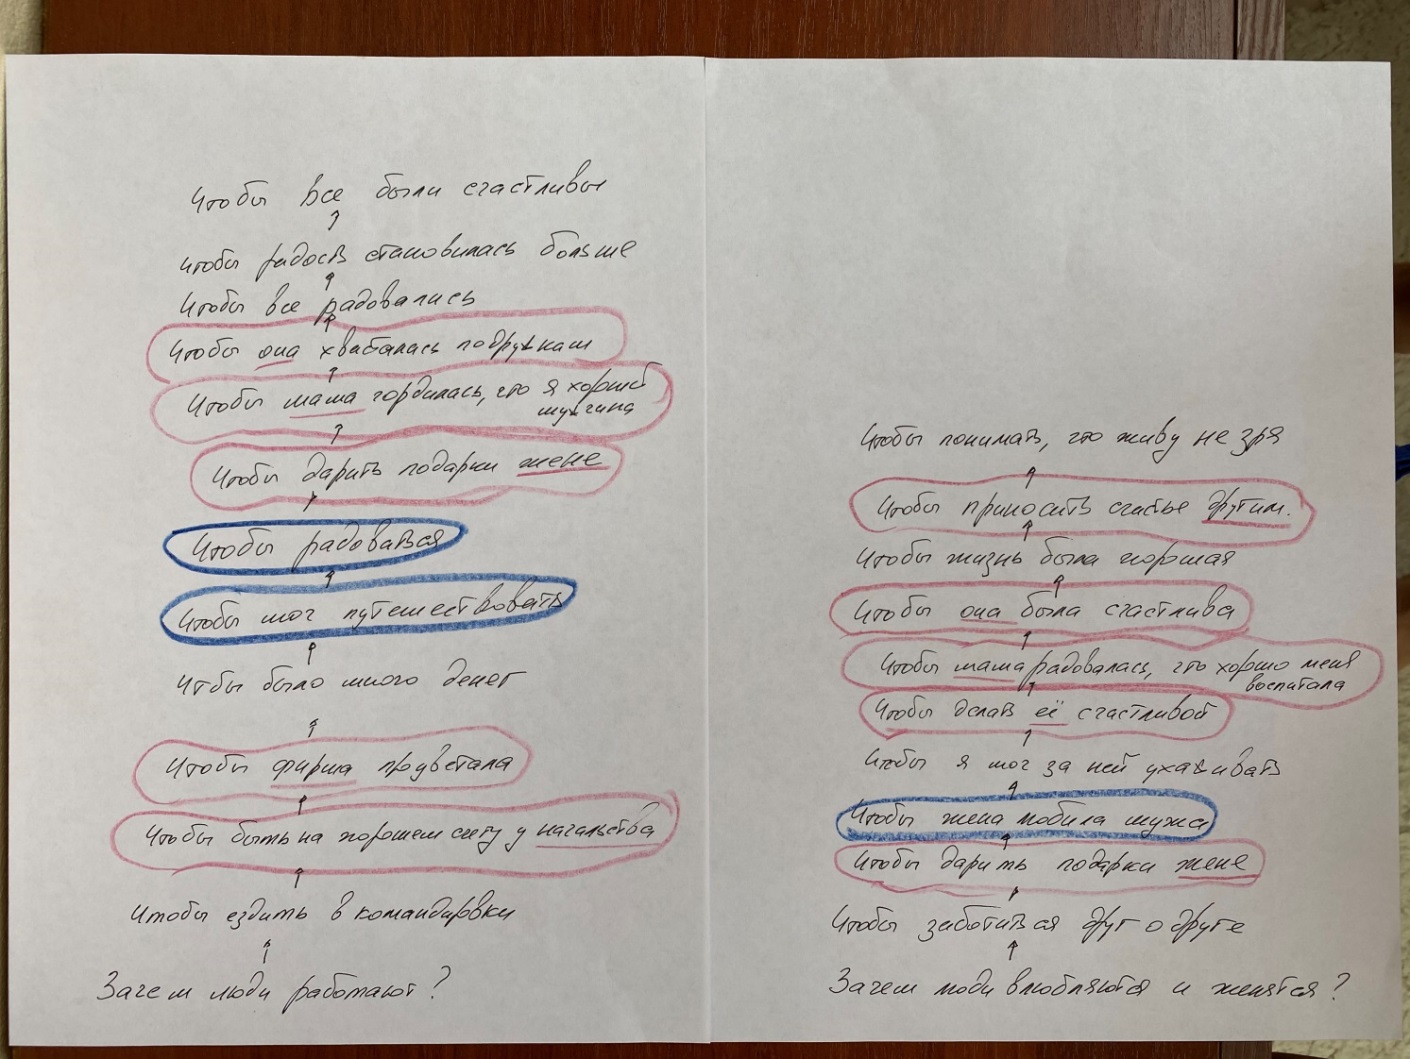 Чтобы все были счастливы
Чтобы радость становилась больше
Чтобы все радовались
Чтобы она хвасталась подружкам
Чтобы мама гордилась, что я хороший
мужчина
Чтобы дарить подарки жене
Чтобы радоваться
Чтобы мог путешествовать
Чтбы было много денег
Чтобы фирма процветала
Чтобы быть на хорошем счету у начальства
Чтобы ездить в командировки
Зачем люди работают?
Чтобы понимать, что живу не зря
Чтобы приносить счастье другим.
Чтобы жизнь была хорошая
Чтобы она была счастлива
Чтобы мама радовалась, что хорошо меня
воспитала
Чтобы делать её счастливой
Чтобы я мог за ней ухаживать
Чтобы жена любила мужа
Чтобы дарить подарки жене
Чтобы заботиться друг о друге
Зачем люди влюбляются и женятся?